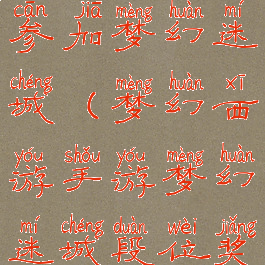 cān jiā mèng huàn mí
参加梦幻迷
chéng mèng huàn xī
城（梦幻西
yóu shǒu yóu mèng huàn
游手游梦幻
mí chéng duàn wèi jiǎng
迷城段位奖